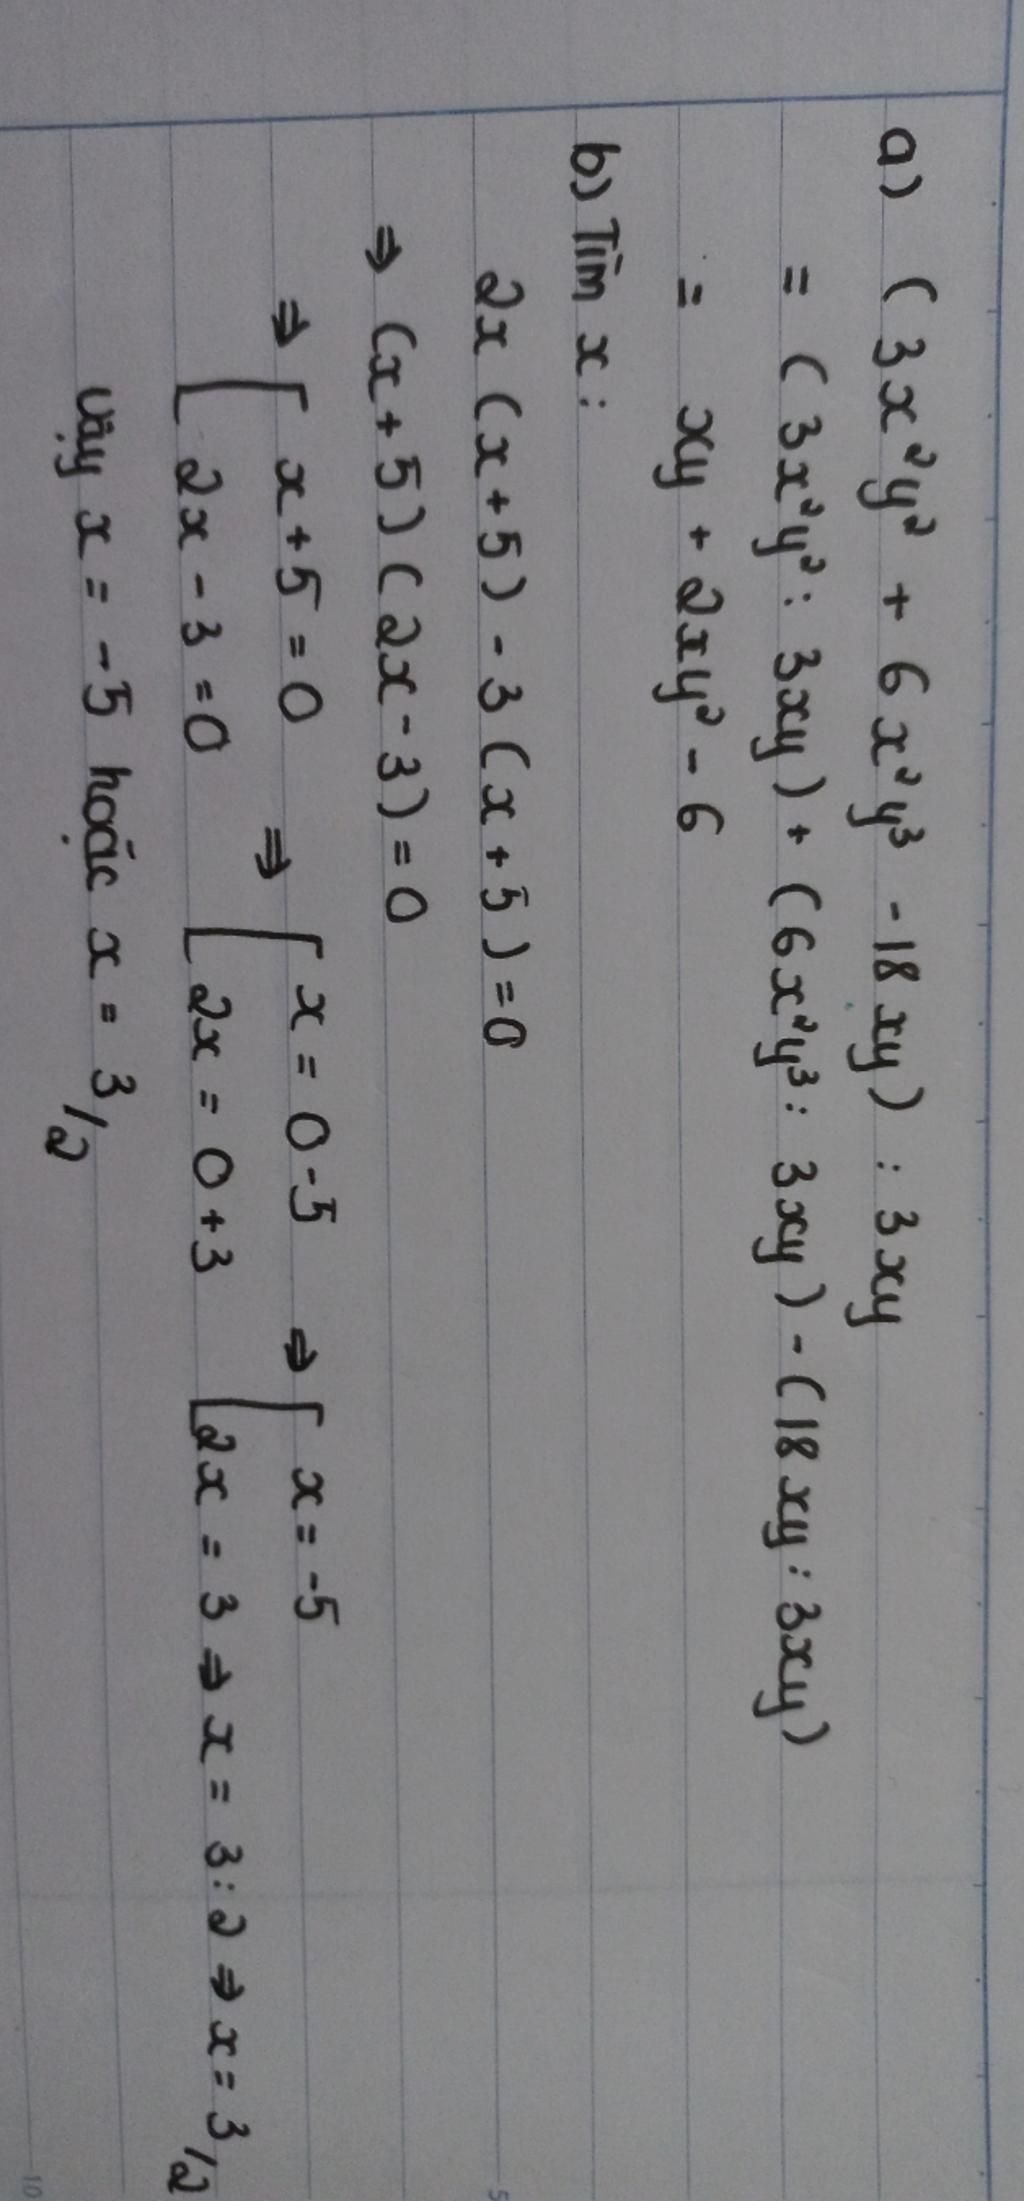 a) (3x²y² + 6x²y³ - 18xy) : 3xy
= (3x²y² : 3xy) + (6x²y³ : 3xy) - (18xy : 3xy)
= xy + 2xy² - 6
b) Tìm x :
2x (x + 5) - 3 (x + 5) = 0
⇒ (x + 5) (2x - 3) = 0
⇒ [ x + 5 = 0 ⇒ [ x = 0 - 5 ⇒ [ x = -5
[ 2x - 3 = 0 [ 2x = 0 + 3 [ 2x = 3 ⇒ x = 3 : 2 ⇒ x = 3/2
Vậy x = -5 hoặc x = 3/2
5
10